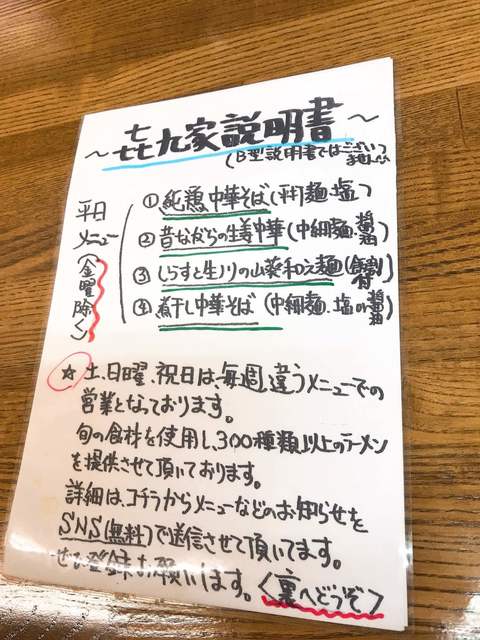 ~㐂九家説明書~
(B型説明書ではございません)
平日メニュー(金曜除く)
①純鶏中華そば(平打麺.塩)
②昔ながらの生姜中華(中細麺.醤油)
③しらすと生ノリの山葵和え麺(付)
④煮干し中華そば(中細麺.塩or醤油)
☆土.日曜.祝日は、毎週、違うメニューでの
営業となっております。
旬の食材を使用し、300種類以上のラーメン
を提供させて頂いております。
詳細は、コチラからメニューなどのお知らせを
SNS(無料)で送信させて頂いてます。
ぜひ登録お願いします。<裏へどうぞ>